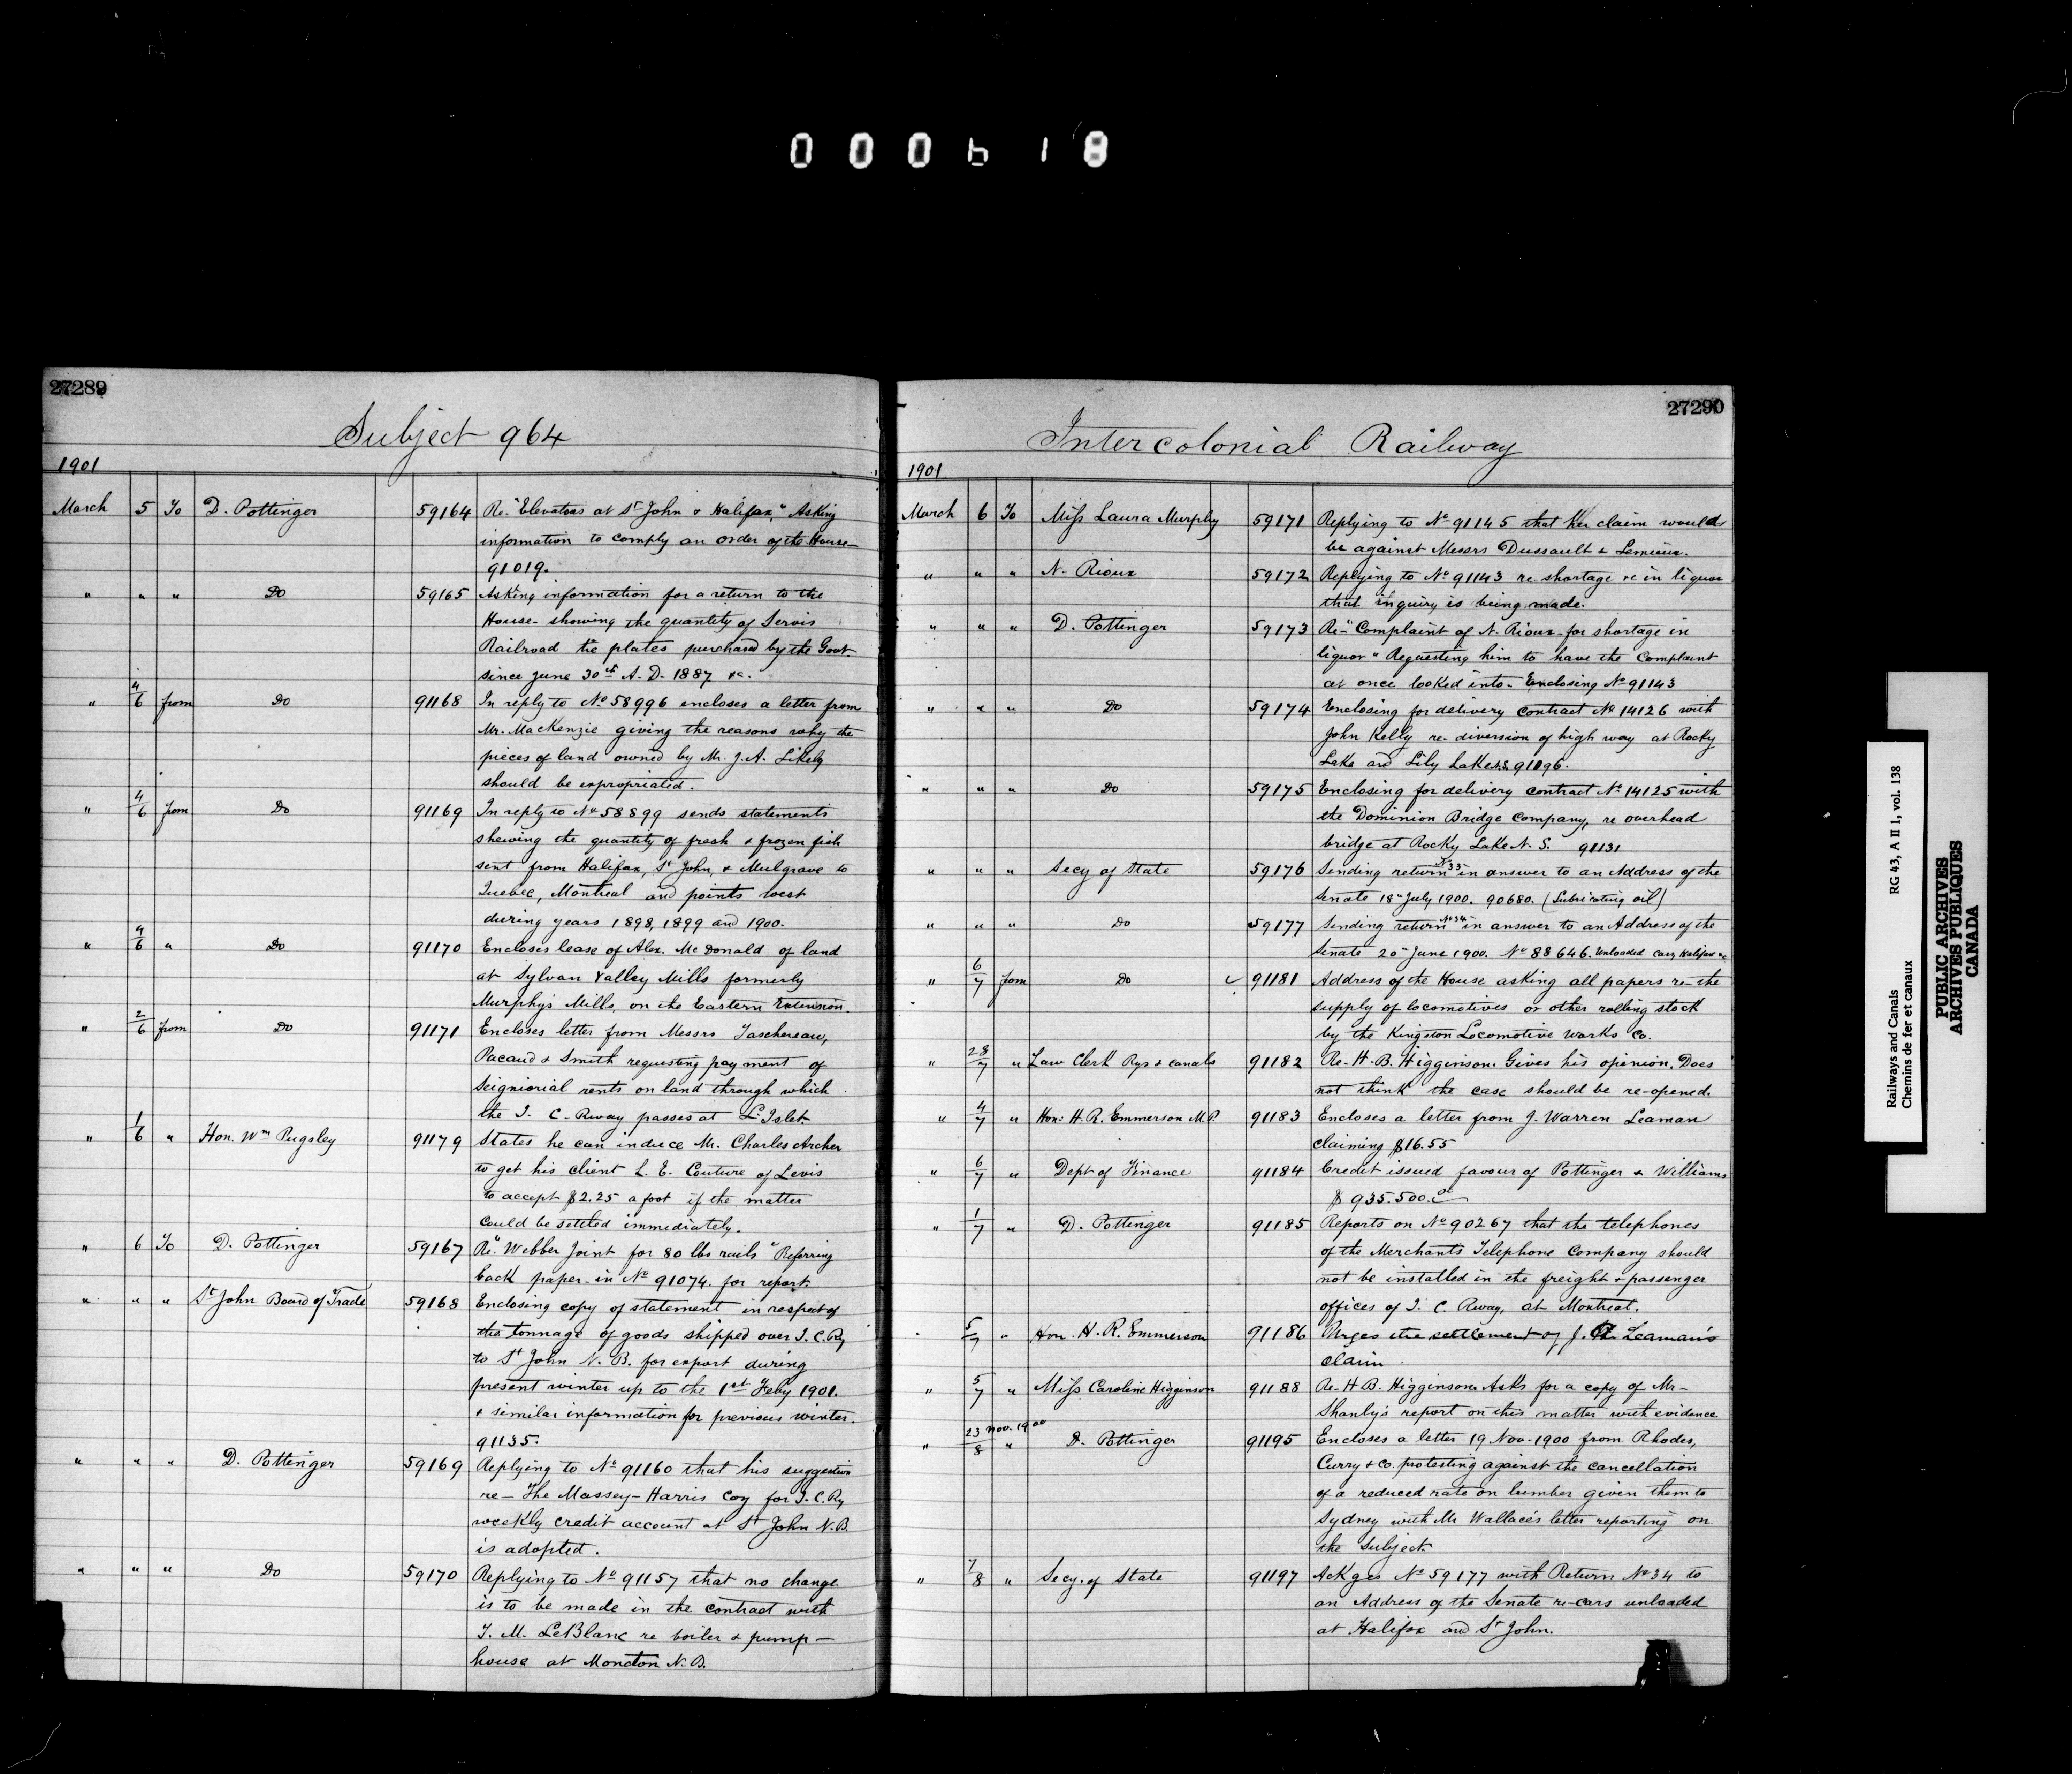 000618
27289
Subject 964
1901
March 5 To D. Pottinger 59164 Re "Elevators at St John & Halifax," Asking
information to comply an order of the House-
91019.
" " " Do 59165 Asking information for a return to the
House- showing the quantity of Servis
Railroad tie plates purchased by the Govt.
since June 30th A.D. 1887 &c.
" 4/6 from Do 91168 In reply to No 58996 encloses a letter from
Mr. MacKenzie giving the reasons why the
pieces of land owned by Mr. J.A. Likely
should be expropriated.
" 4/6 from Do 91169 In reply to No 58899 sends statements
shewing the quantity of fresh & frozen fish
sent from Halifax, St John, & Mulgrave to
Quebec, Montreal and points west
during years 1898, 1899 and 1900.
" 4/6 " Do 91170 Encloses lease of Alex. McDonald of land
at Sylvan Valley Mills formerly
Murphy's Mills, on the Eastern Extension.
" 2/6 from Do 91171 Encloses letter from Messrs Taschereau,
Pacaud & Smith requesting payment of
Seigniorial rents on land through which
the I. C. Rway passes at L'Islet.
" 1/6 " Hon. Wm Pugsley 91179 States he can induce Mr. Charles Archer
to get his client L. E. Couture of Levis
to accept $2.25 a foot if the matter
could be settled immediately.
" 6 To D. Pottinger 59167 Re "Webber Joint for 80 lbs rails" Referring
back paper in No 91074 for report.
" " " St John Board of Trade 59168 Enclosing copy of statement in respect of
the tonnage of goods shipped over I.C.Ry
to St John N. B. for export during
present winter up to the 1st Feby 1901.
& similar information for previous winter.
91135.
" " " D. Pottinger 59169 Replying to No 91160 that his suggestion
re- The Massey-Harris Coy for I.C.Ry
weekly credit account at St John N.B.
is adopted.
" " " Do 59170 Replying to No 91157 that no change
is to be made in the contract with
T. M. LeBlanc re boiler & pump-
house at Moncton N.B.
27290
Intercolonial Railway
1901
March 6 To Miss Laura Murphy 59171 Replying to No 91145 that her claim would
be against Messrs Dussault & Lemieux.
" " " N. Rioux 59172 Replying to No 91143 re shortage &c in liquor
that inquiry is being made.
" " " D. Pottinger 59173 Re-"Complaint of N. Rioux for shortage in
liquor" Requesting him to have the Complaint
at once looked into. Enclosing No 91143
" " " Do 59174 Enclosing for delivery contract No 14126 with
John Kelly re- diversion of high way at Rocky
Lake and Lily Lake N.S. 91096.
" " " Do 59175 Enclosing for delivery contract No 14125 with
the Dominion Bridge Company, re overhead
bridge at Rocky Lake N. S. 91131
" " " Secy of State 59176 Sending return No 33 in answer to an Address of the
Senate 18th July 1900. 90680. (Lubricating oil)
" " " Do 59177 Sending return No 34 in answer to an Address of the
Senate 20th June 1900. No 88646. Unloaded Cars Halifax &c
" 6/7 from Do 91181 Address of the House asking all papers re- the
supply of locomotives or other rolling stock
by the Kingston Locomotive Works Co.
" 28/7 " Law Clerk Rys & Canals 91182 Re- H. B. Higginson. Gives his opinion. Does
not think the case should be re-opened.
" 4/7 " Hon. H. R. Emmerson M.P. 91183 Encloses a letter from J. Warren Leaman
claiming $16.55
" 6/7 " Dept of Finance 91184 Credit issued favour of Pottinger & Williams
$ 935.500.00
" 1/7 " D. Pottinger 91185 Reports on No 90267 that the telephones
of the Merchants Telephone Company should
not be installed in the freight & passenger
offices of I. C. Rway, at Montreal.
" 5/7 " Hon. H. R. Emmerson 91186 Urges the settlement of J. Leaman's
claim
" 5/7 " Miss Caroline Higginson 91188 Re- H. B. Higginson. Asks for a copy of Mr-
Shanly's report on this matter with evidence
" 23 Nov. 1900/8 " D. Pottinger 91195 Encloses a letter 19 Nov. 1900 from Rhodes,
Curry & Co. protesting against the cancellation
of a reduced rate on lumber given them to
Sydney with Mr Wallace's letter reporting on
the subject.
" 7/8 " Secy. of State 91197 Ackges No 59177 with Return No 34 to
an Address of the Senate re-cars unloaded
at Halifax and St John.
Railways and Canals RG 43, A II 1, vol. 138
Chemins de fer et canaux
PUBLIC ARCHIVES
ARCHIVES PUBLIQUES
CANADA